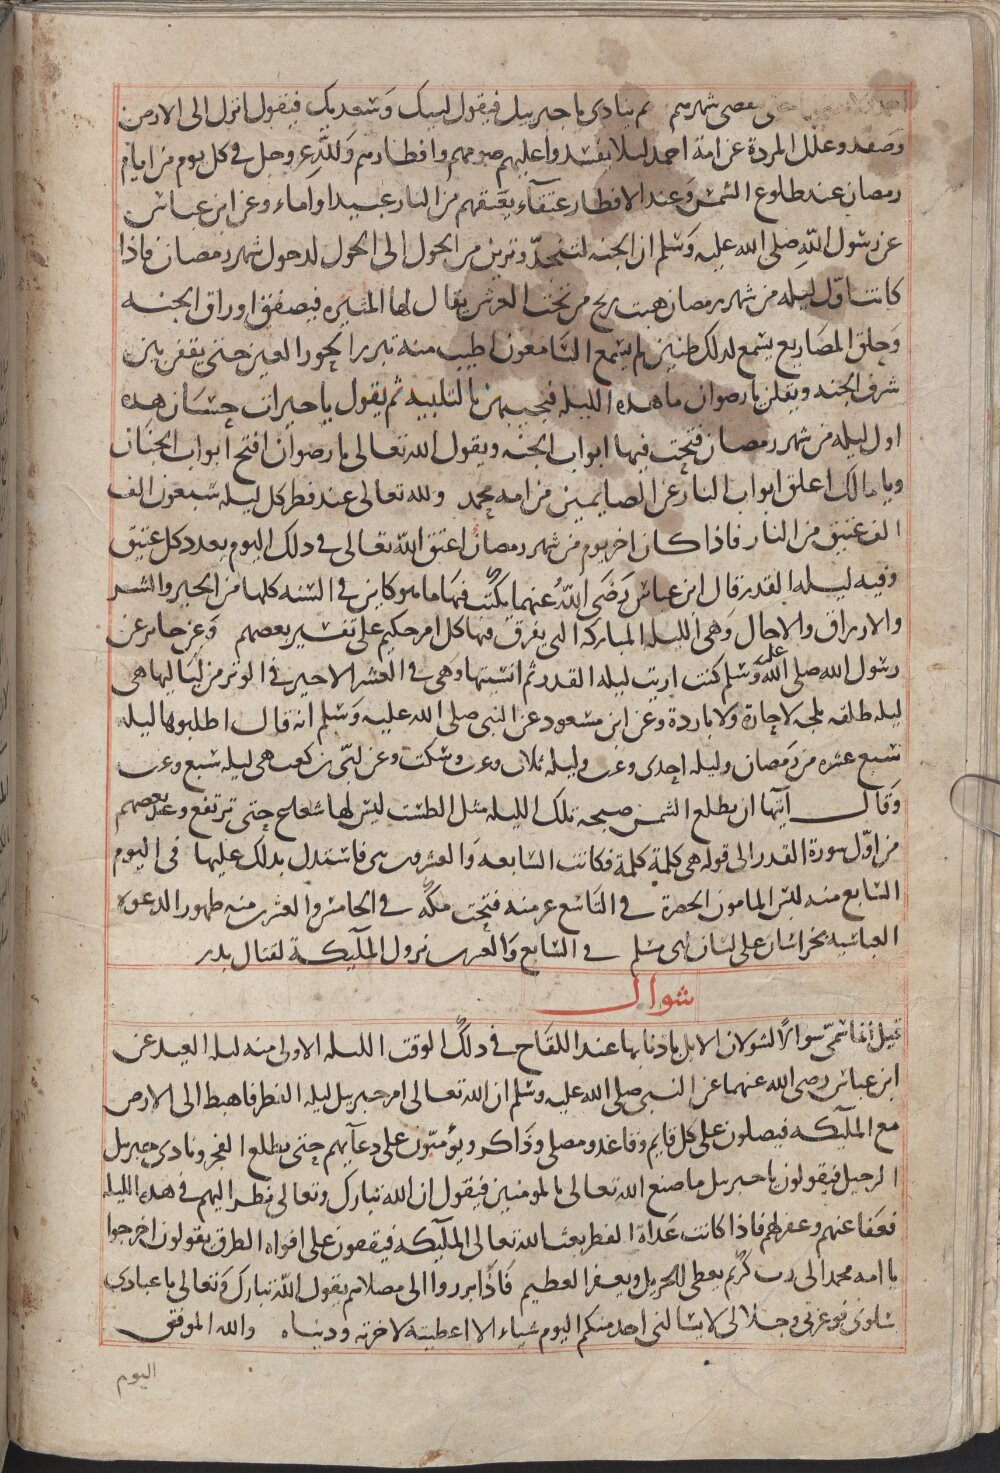 ينقضى شهرهم ثم ينادى يا جبريل فيقول لبيك وسعديك فيقول انزل الى الارض
وصفد وغلل المردة عن امة احمد ليلا يفسدوا عليهم صومهم وافطارهم ولله عز وجل فى كل يوم من ايام
رمضان عند طلوع الشمس وعند الافطار عتقآء يعتقهم من النار عبيدا واماء وعن ابن عباس
عن رسول الله صلى الله عليه وسلم ان الجنه لتنجد وتزين من الحول الى الحول لدخول شهر رمضان فاذا
كانت اول ليله من شهر رمضان هبت ريح من تحت العرش يقال لها المثيره فيصفق اوراق الجنه
وحلق المصاريع يسمع لذلك طنين لم يسمع السامعون اطيب منه تبرز الحور العين حتى يقفن بين
شرف الجنه ويقلن يا رضوان ما هذه الليله فيجيبهن بالتلبيه ثم يقول يا خيرات حسان هذه
اول ليله من شهر رمضان فتحت فيها ابواب الجنه ويقول الله تعالى يا رضوان افتح ابواب الجنان
ويا مالك اغلق ابواب النار عن الصايمين من امه محمد ولله تعالى عند فطر كل ليله سبعون الف
الف عتيق من النار فاذا كان اخر يوم من شهر رمضان اعتق الله تعالى فى ذلك اليوم بعدد كل عتيق
وفيه ليله القدر قال ابن عباس رضى الله عنهما يكتب فيها ما هو كاين فى السنه كلها من الخير والشر
والارزاق والاجال وهى الليله المباركه التى يفرق فيها كل امر حكيم على تفسير بعضهم وعن جابر عن
رسول الله صلى الله عليه وسلم كنت اريت ليله القدر ثم انسيتها وهى فى العشر الاخير فى الوتر من لياليها هى
ليله طلقه بلجه لا حارة ولا باردة وعن ابن مسعود عن النبى صلى الله عليه وسلم انه قال اطلبوها ليله
سبع عشره من رمضان وليله احدى وعشرين وليله ثلاث وعشرين وسكت وعن ابى بن كعب هى ليله سبع وعشرين
وقال آيتها ان يطلع الشمس صبيحه تلك الليله مثل الطست ليس لها شعاع حتى ترتفع وعد بعضهم
من اول سورة القدر الى قوله هى كلمة كلمة فكانت السابعه والعشرون هى فاستدل بذلك عليها فى اليوم
السابع منه لبس المامون الخضرة فى التاسع عشر منه فتحت مكة فى الخامس والعشرين منه ظهور الدعوة
العباسيه بخراسان على لسان ابى مسلم فى السابع والعشرين نزول الملآيكة لقتال بدر
شوال
قيل انما سمى شوالا لشولان الابل باذنابها عند اللقاح فى ذلك الوقت الليله الاولى منه ليله العيد عن
ابن عباس رضى الله عنهما عن النبى صلى الله عليه وسلم ان الله تعالى امر جبريل ليله الفطر فاهبط الى الارض
مع الملآيكه فيصلون على كل قايم وقاعد ومصلى وذاكر ويؤمنون على دعآيهم حتى يطلع الفجر ونادى جبريل
الرحيل فيقولون يا جبريل ما صنع الله تعالى بالمومنين فيقول ان الله تبارك وتعالى نظر اليهم فى هذه الليله
فعفا عنهم وغفر لهم فاذا كانت غداة الفطر بعث الله تعالى الملآيكه فيقفون على افواه الطرق يقولون اخرجوا
يا امه محمد الى رب كريم يعطى الجزيل ويغفر العظيم فاذا برزوا الى مصلاهم يقول الله تبارك وتعالى يا عبادى
سلونى فوعزتى وجلالى لا يسالنى احد منكم اليوم شياء الا اعطيته لاخرته ودنياه والله الموفق
اليوم